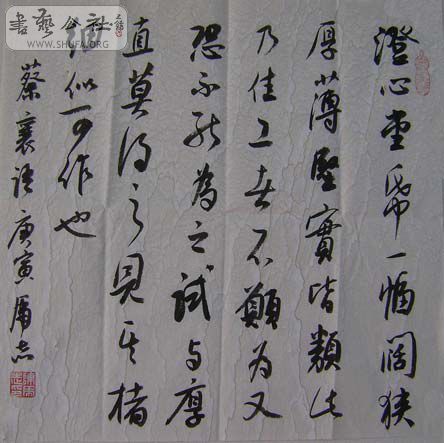 澄心堂帋一幅闊狹
厚薄堅實皆類此
乃佳工者不願為又
恐不能為之試与厚
直莫得之見其楮
細似可作也
蔡襄語 庚寅
書藝公社
WWW.SHUFA.ORG